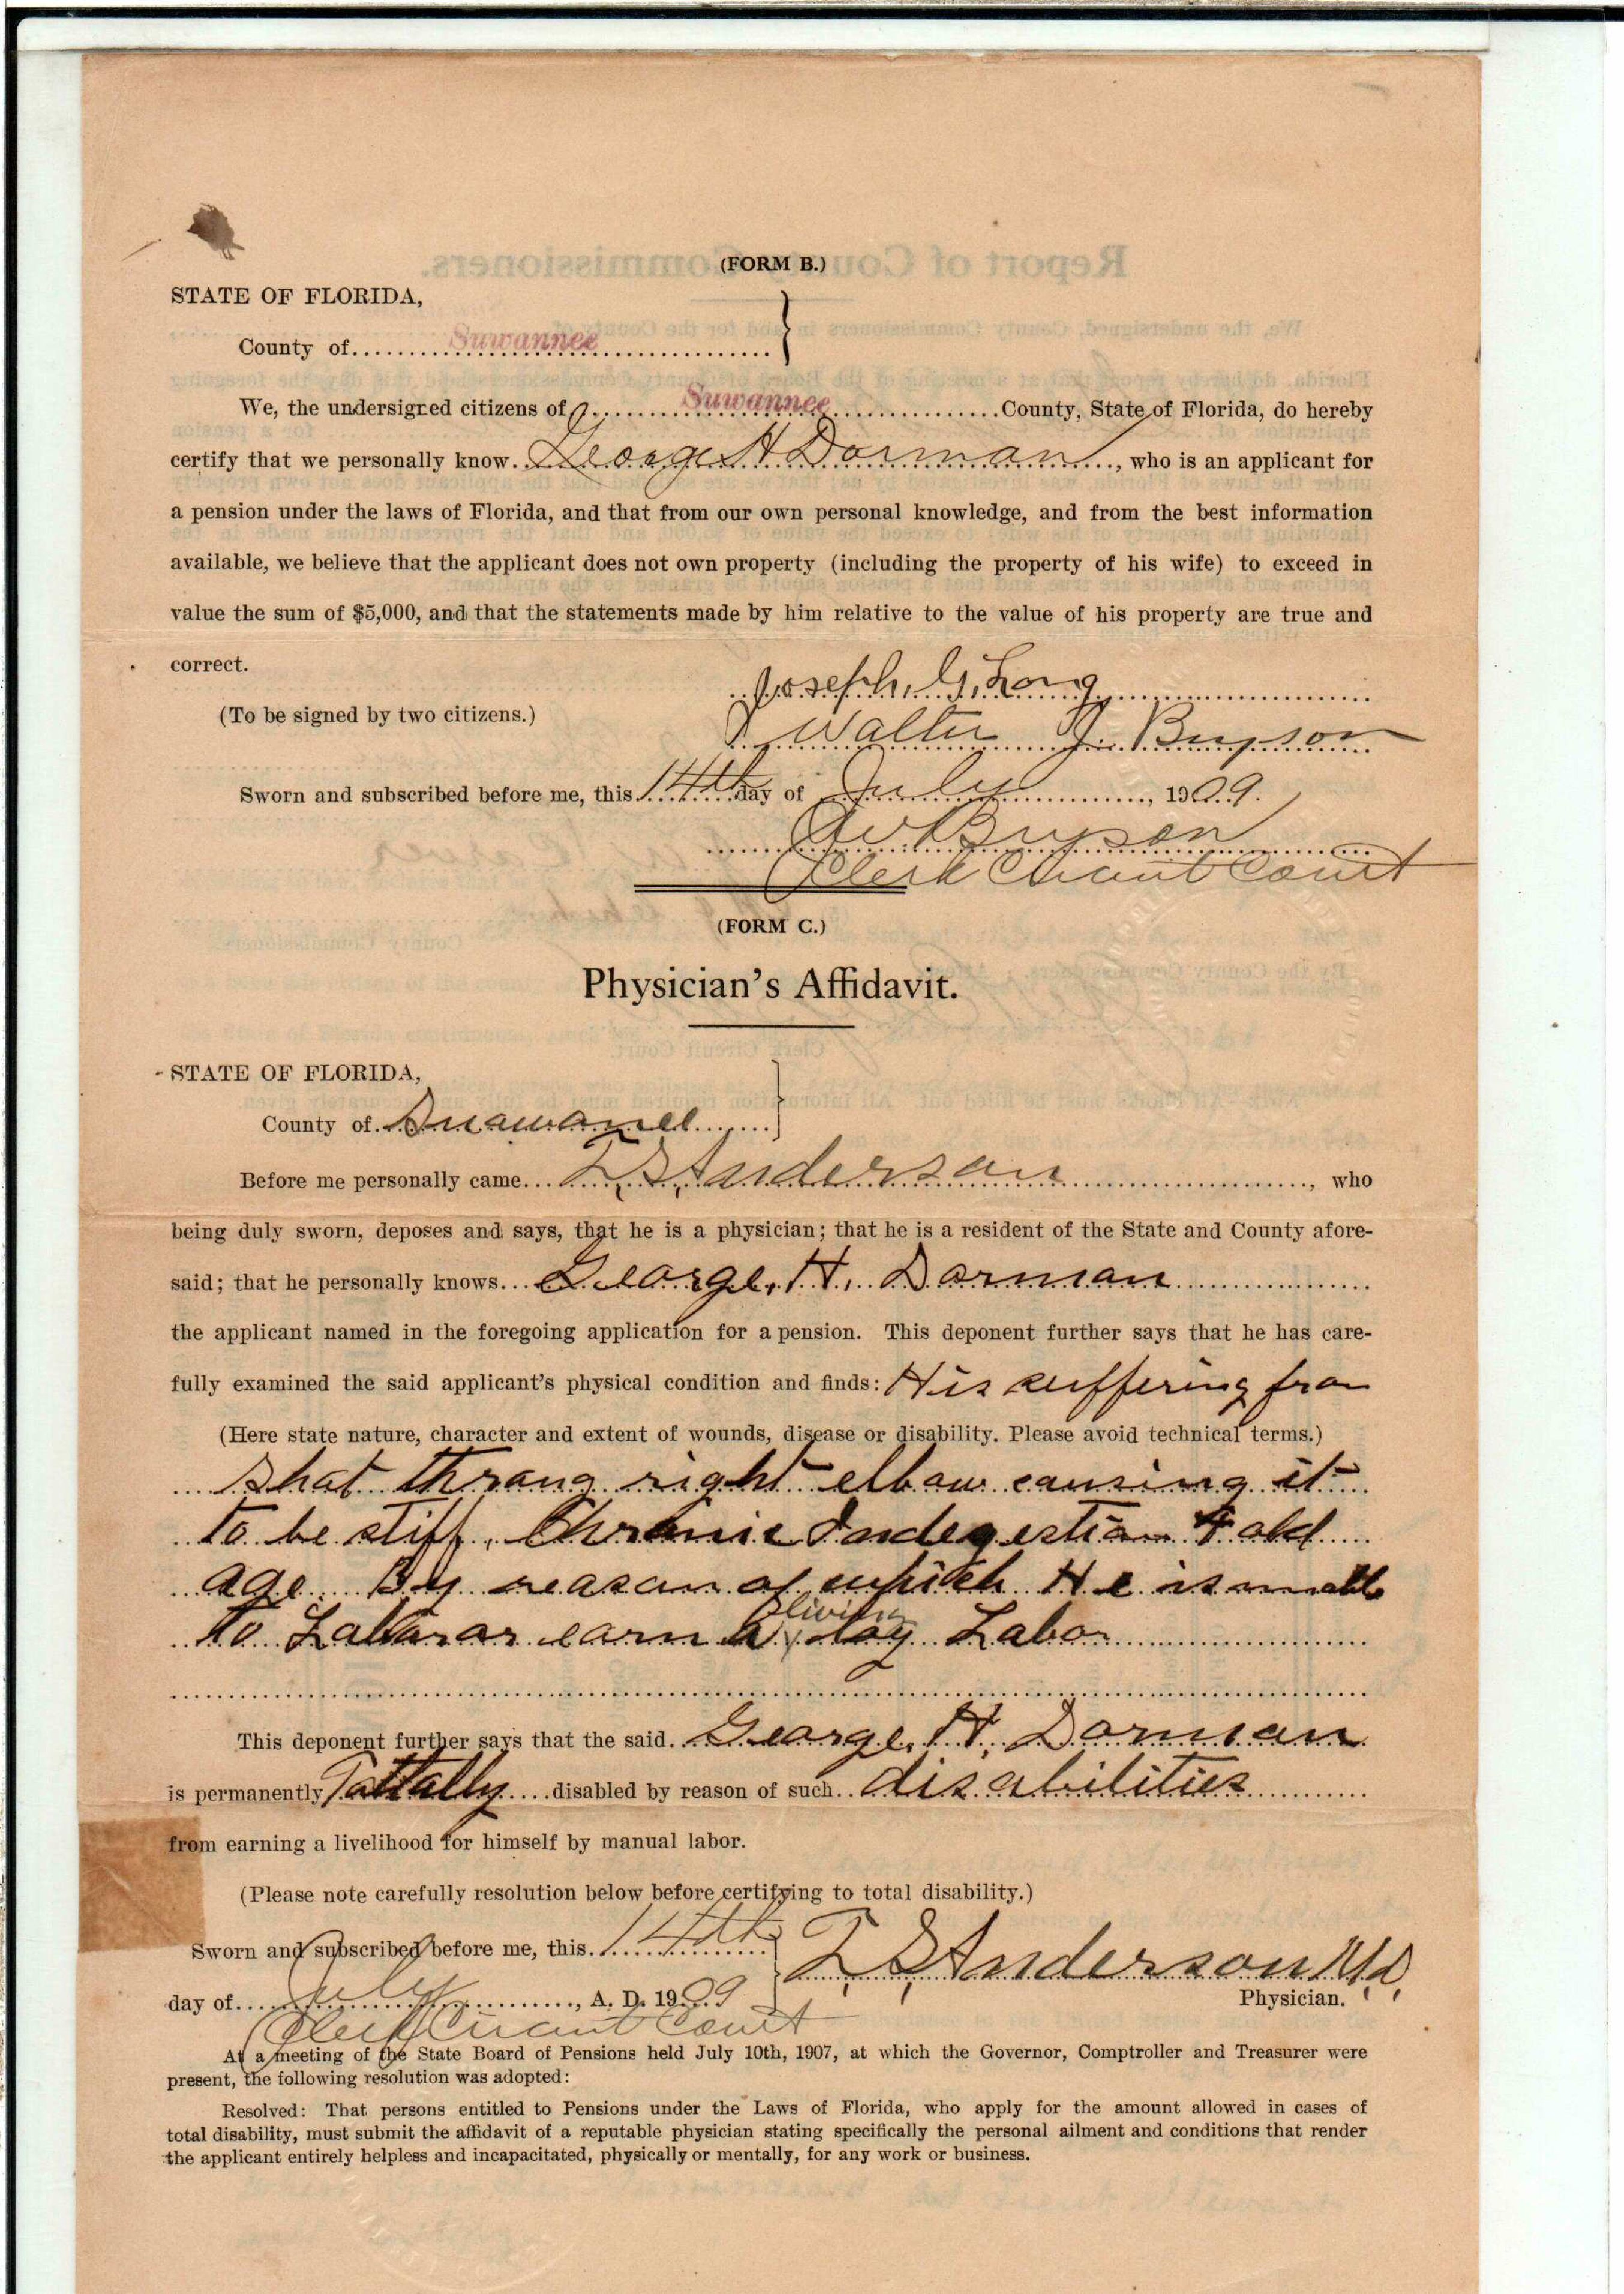 (FORM B.)
STATE OF FLORIDA,
County of Suwannee
We, the undersigned citizens of Suwannee County, State of Florida, do hereby
certify that we personally know George H Dorman, who is an applicant for
a pension under the laws of Florida, and that from our own personal knowledge, and from the best information
available, we believe that the applicant does not own property (including the property of his wife) to exceed in
value the sum of $5,000, and that the statements made by him relative to the value of his property are true and
correct.
Joseph. G. Long
(To be signed by two citizens.)
Walter J. Bryson
Sworn and subscribed before me, this 14th day of July, 1909.
Bryson
Clerk Circuit Court
(FORM C.)
Physician's Affidavit.
STATE OF FLORIDA,
County of Suawanee
Before me personally came T. S. Anderson, who
being duly sworn, deposes and says, that he is a physician; that he is a resident of the State and County afore-
said; that he personally knows George. H. Dorman
the applicant named in the foregoing application for a pension. This deponent further says that he has care-
fully examined the said applicant's physical condition and finds: His suffering from
(Here state nature, character and extent of wounds, disease or disability. Please avoid technical terms.)
shot throug right elbow causing it
to be stiff, Chronic Indegestion & old
age By reason of which He is unable
to Labor or earn a living by Labor
This deponent further says that the said George. H. Dorman
is permanently Tottally disabled by reason of such disabilities
from earning a livelihood for himself by manual labor.
(Please note carefully resolution below before certifying to total disability.)
Sworn and subscribed before me, this 14th
T. S. Anderson M.D.
day of July, A. D. 1909
Physician.
Clerk Circuit Court
At a meeting of the State Board of Pensions held July 10th, 1907, at which the Governor, Comptroller and Treasurer were
present, the following resolution was adopted:
Resolved: That persons entitled to Pensions under the Laws of Florida, who apply for the amount allowed in cases of
total disability, must submit the affidavit of a reputable physician stating specifically the personal ailment and conditions that render
the applicant entirely helpless and incapacitated, physically or mentally, for any work or business.